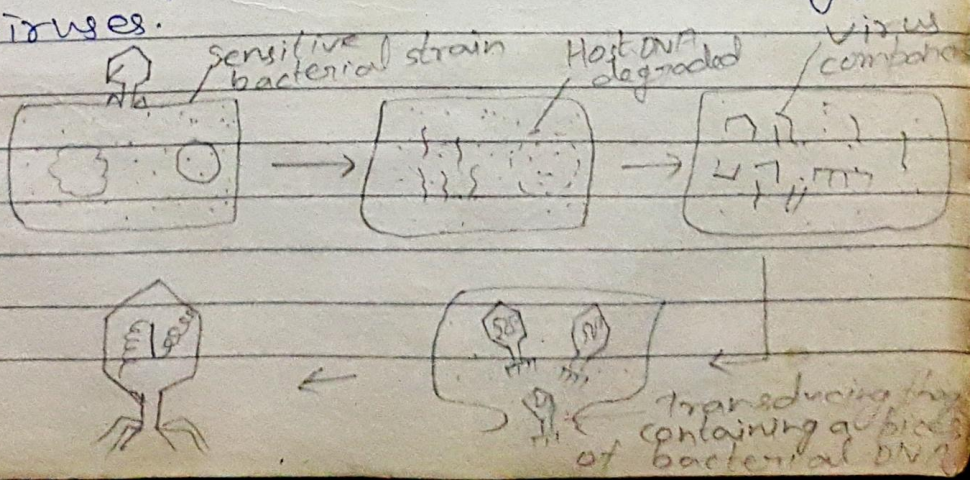 iruses.
Sensitive
bacterial strain
Host DNA
degraded
Virus
compone
Transducing phag
containing a piece
of bacterial DNA